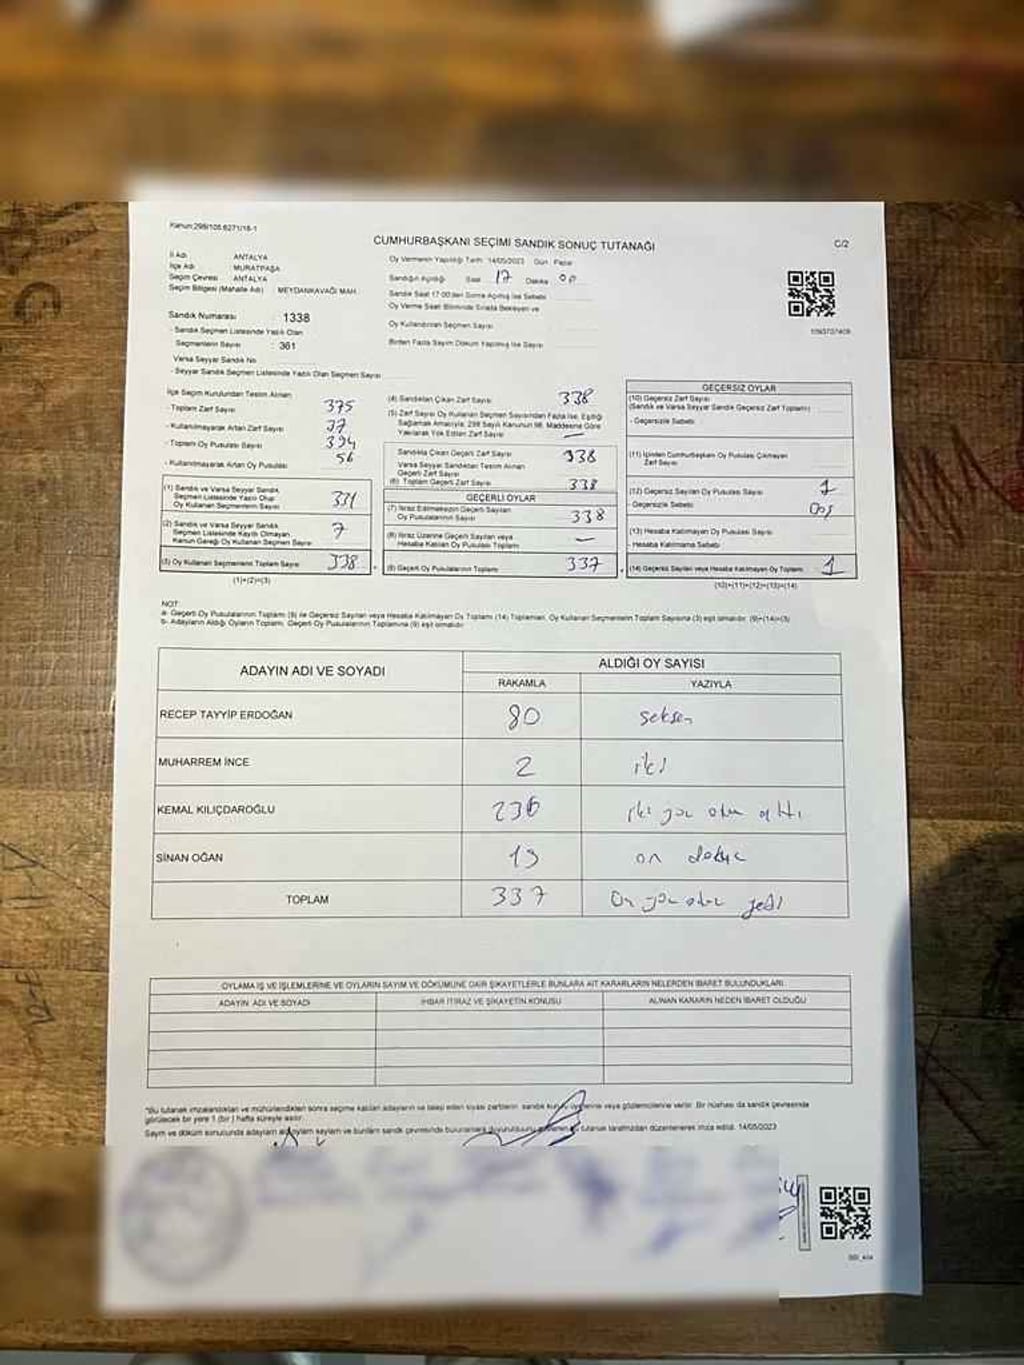 Kanun:298/105.6271/16-1
CUMHURBAŞKANI SEÇİMİ SANDIK SONUÇ TUTANAĞI
C/2
İl Adı ANTALYA
İlçe Adı MURATPAŞA
Seçim Çevresi ANTALYA
Seçim Bölgesi (Mahalle Adı) MEYDANKAVAĞI MAH.
Oy Vermenin Yapıldığı Tarih: 14/05/2023 Gün: Pazar
Sandığın Açıldığı Saat 17 Dakika 00
Sandık Saat 17:00'den Sonra Açılmış İse Sebebi
Oy Verme Saati Bitiminde Sırada Bekleyen ve
Oy Kullandıran Seçmen Sayısı
Birden Fazla Sayım Döküm Yapılmış İse Sayısı
Sandık Numarası 1338
- Sandık Seçmen Listesinde Yazılı Olan
Seçmenlerin Sayısı : 361
Varsa Seyyar Sandık No
- Seyyar Sandık Seçmen Listesinde Yazılı Olan Seçmen Sayısı
İlçe Seçim Kurulundan Teslim Alınan
- Toplam Zarf Sayısı 375
- Kullanılmayarak Artan Zarf Sayısı 37
- Toplam Oy Pusulası Sayısı 394
- Kullanılmayarak Artan Oy Pusulası 56
(1) Sandık ve Varsa Seyyar Sandık
Seçmen Listesinde Yazılı Olup
Oy Kullanan Seçmenlerin Sayısı 331
(2) Sandık ve Varsa Seyyar Sandık
Seçmen Listesinde Kayıtlı Olmayan
Kanun Gereği Oy Kullanan Seçmen Sayısı 7
(3) Oy Kullanan Seçmenlerin Toplam Sayısı 338
(1)+(2)=(3)
(4) Sandıktan Çıkan Zarf Sayısı 338
(5) Zarf Sayısı Oy Kullanan Seçmen Sayısından Fazla İse, Eşitliği
Sağlamak Amacıyla, 298 Sayılı Kanunun 98. Maddesine Göre
Yakılarak Yok Edilen Zarf Sayısı —
Sandıkta Çıkan Geçerli Zarf Sayısı 338
Varsa Seyyar Sandıktan Teslim Alınan
Geçerli Zarf Sayısı
(6) Toplam Geçerli Zarf Sayısı 338
GEÇERLİ OYLAR
(7) İtiraz Edilmeksizin Geçerli Sayılan
Oy Pusulalarının Sayısı 338
(8) İtiraz Üzerine Geçerli Sayılan veya
Hesaba Katılan Oy Pusulası Toplamı —
(9) Geçerli Oy Pusulalarının Toplamı 337
GEÇERSİZ OYLAR
(10) Geçersiz Zarf Sayısı
(Sandık ve Varsa Seyyar Sandık Geçersiz Zarf Toplamı)
- Geçersizlik Sebebi
(11) İçinden Cumhurbaşkanı Oy Pusulası Çıkmayan
Zarf Sayısı
(12) Geçersiz Sayılan Oy Pusulası Sayısı 1
- Geçersizlik Sebebi
(13) Hesaba Katılmayan Oy Pusulası Sayısı
- Hesaba Katılmama Sebebi
(14) Geçersiz Sayılan veya Hesaba Katılmayan Oy Toplamı 1
(10)+(11)+(12)+(13)=(14)
NOT:
a- Geçerli Oy Pusulalarının Toplamı (9) ile Geçersiz Sayılan veya Hesaba Katılmayan Oy Toplamı (14) Toplamları, Oy Kullanan Seçmenlerin Toplam Sayısına (3) eşit olmalıdır. (9)+(14)=(3)
b- Adayların Aldığı Oyların Toplamı, Geçerli Oy Pusulalarının Toplamına (9) eşit olmalıdır.
ADAYIN ADI VE SOYADI ALDIĞI OY SAYISI
RAKAMLA YAZIYLA
RECEP TAYYİP ERDOĞAN 80 seksen
MUHARREM İNCE 2 iki
KEMAL KILIÇDAROĞLU 236 iki yüz otuz altı
SİNAN OĞAN 19 on dokuz
TOPLAM 337 Üç yüz otuz yedi
OYLAMA İŞ VE İŞLEMLERİNE VE OYLARIN SAYIM VE DÖKÜMÜNE DAİR ŞİKAYETLERLE BUNLARA AİT KARARLARIN NELERDEN İBARET BULUNDUKLARI
ADAYIN ADI VE SOYADI İHBAR İTİRAZ VE ŞİKAYETİN KONUSU ALINAN KARARIN NEDEN İBARET OLDUĞU
*Bu tutanak imzalandıktan ve mühürlendikten sonra seçime katılan adayların ve talep eden siyasi partilerin sandık kurulu üyelerine veya gözlemcilerine verilir. Bir nüshası da sandık çevresinde
görülecek bir yere 1 (bir) hafta süreyle asılır.
Sayım ve döküm sonucunda adayların tutanak tarafımızdan düzenlenerek imza edildi. 14/05/2023